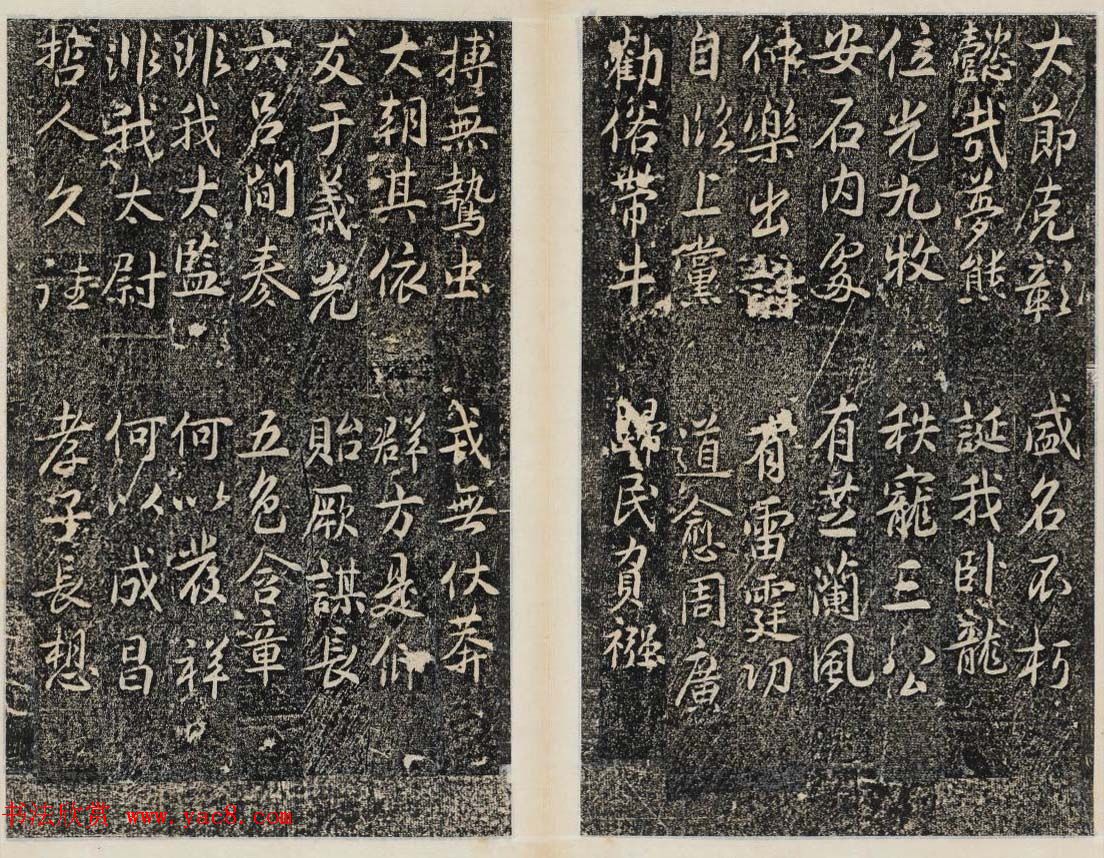 大節克彰 盛名不朽
懿哉夢熊 誕我卧龍
位光九牧 秩寵三公
安石内處 有芝蘭風
仲樂出 有雷霆功
自 上黨 道愈周廣
勸俗帶牛 歸民負襁
搏無鷙虫 戎無伏莽
大朝其依 群方是仰
友于義光 貽厥謀長
六吕間奏 五色含章
非我大監 何以發祥
非我太尉 何以成昌
哲人久 孝子長想
书法欣赏 www.yac8.com